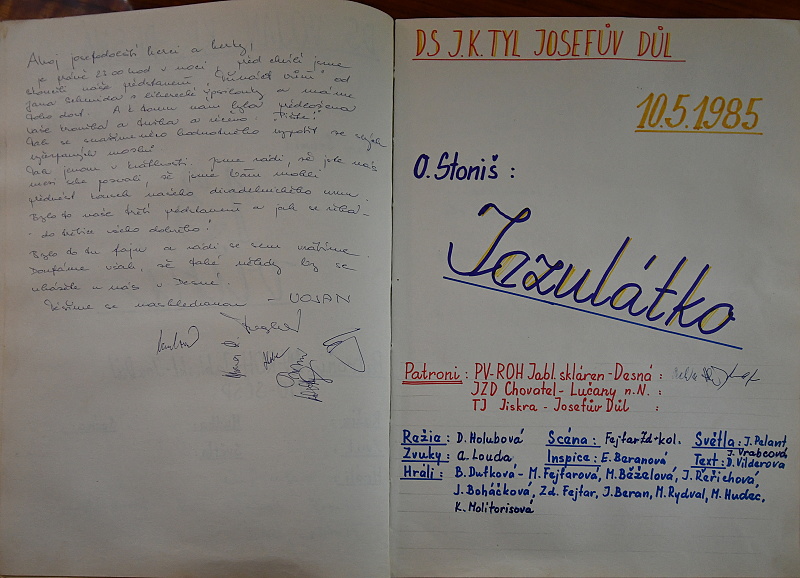 Ahoj josefodolští herci a herky!
je právě 23.00 hod v noci, před chvílí jsme
skončili naše představení od
Jana Schmida z liberecké Ypsilonky a máme
toho dost. A k tomu nám byla předložena
vaše kronika a tužka a věčné: Pište!
Tak se snažíme něco hodnotného vypotit ze svých
mozků.
Tak jenom v krátkosti. Jsme rádi, že jste nás
mezi sebe pozvali, že jsme Vám mohli
našeho divadelnického umu.
Bylo to naše třetí představení a jak se říká -
- do třetice všeho dobrého!
Bylo to tu fajn a rádi se sem vrátíme.
Doufáme však, že také někdy by se
u nás v Desné.
Těšíme se naschledanou - VOJAN
DS J.K. TYL JOSEFŮV DŮL
10.5.1985
O. Stoniš:
Jezulátko
Patroni: PV-ROH Jabl. skláren - Desná:
JZD Chovatel - Lučany n.N.:
TJ Jiskra - Josefův Důl :
Režie: D. Holubová Scéna: Fejfar Zd + kol. Světla: J. Pelant,
J. Vrabcová
Zvuky: A. Louda Inspice: E. Beranová Text: D. Vilderova
Hráli: B. Dufková - M. Fejfarová, M. Běželová, J. Řeřichová,
J. Boháčková, Zd. Fejfar, J. Beran, M. Rydval, M. Hudec,
K. Molitorisová